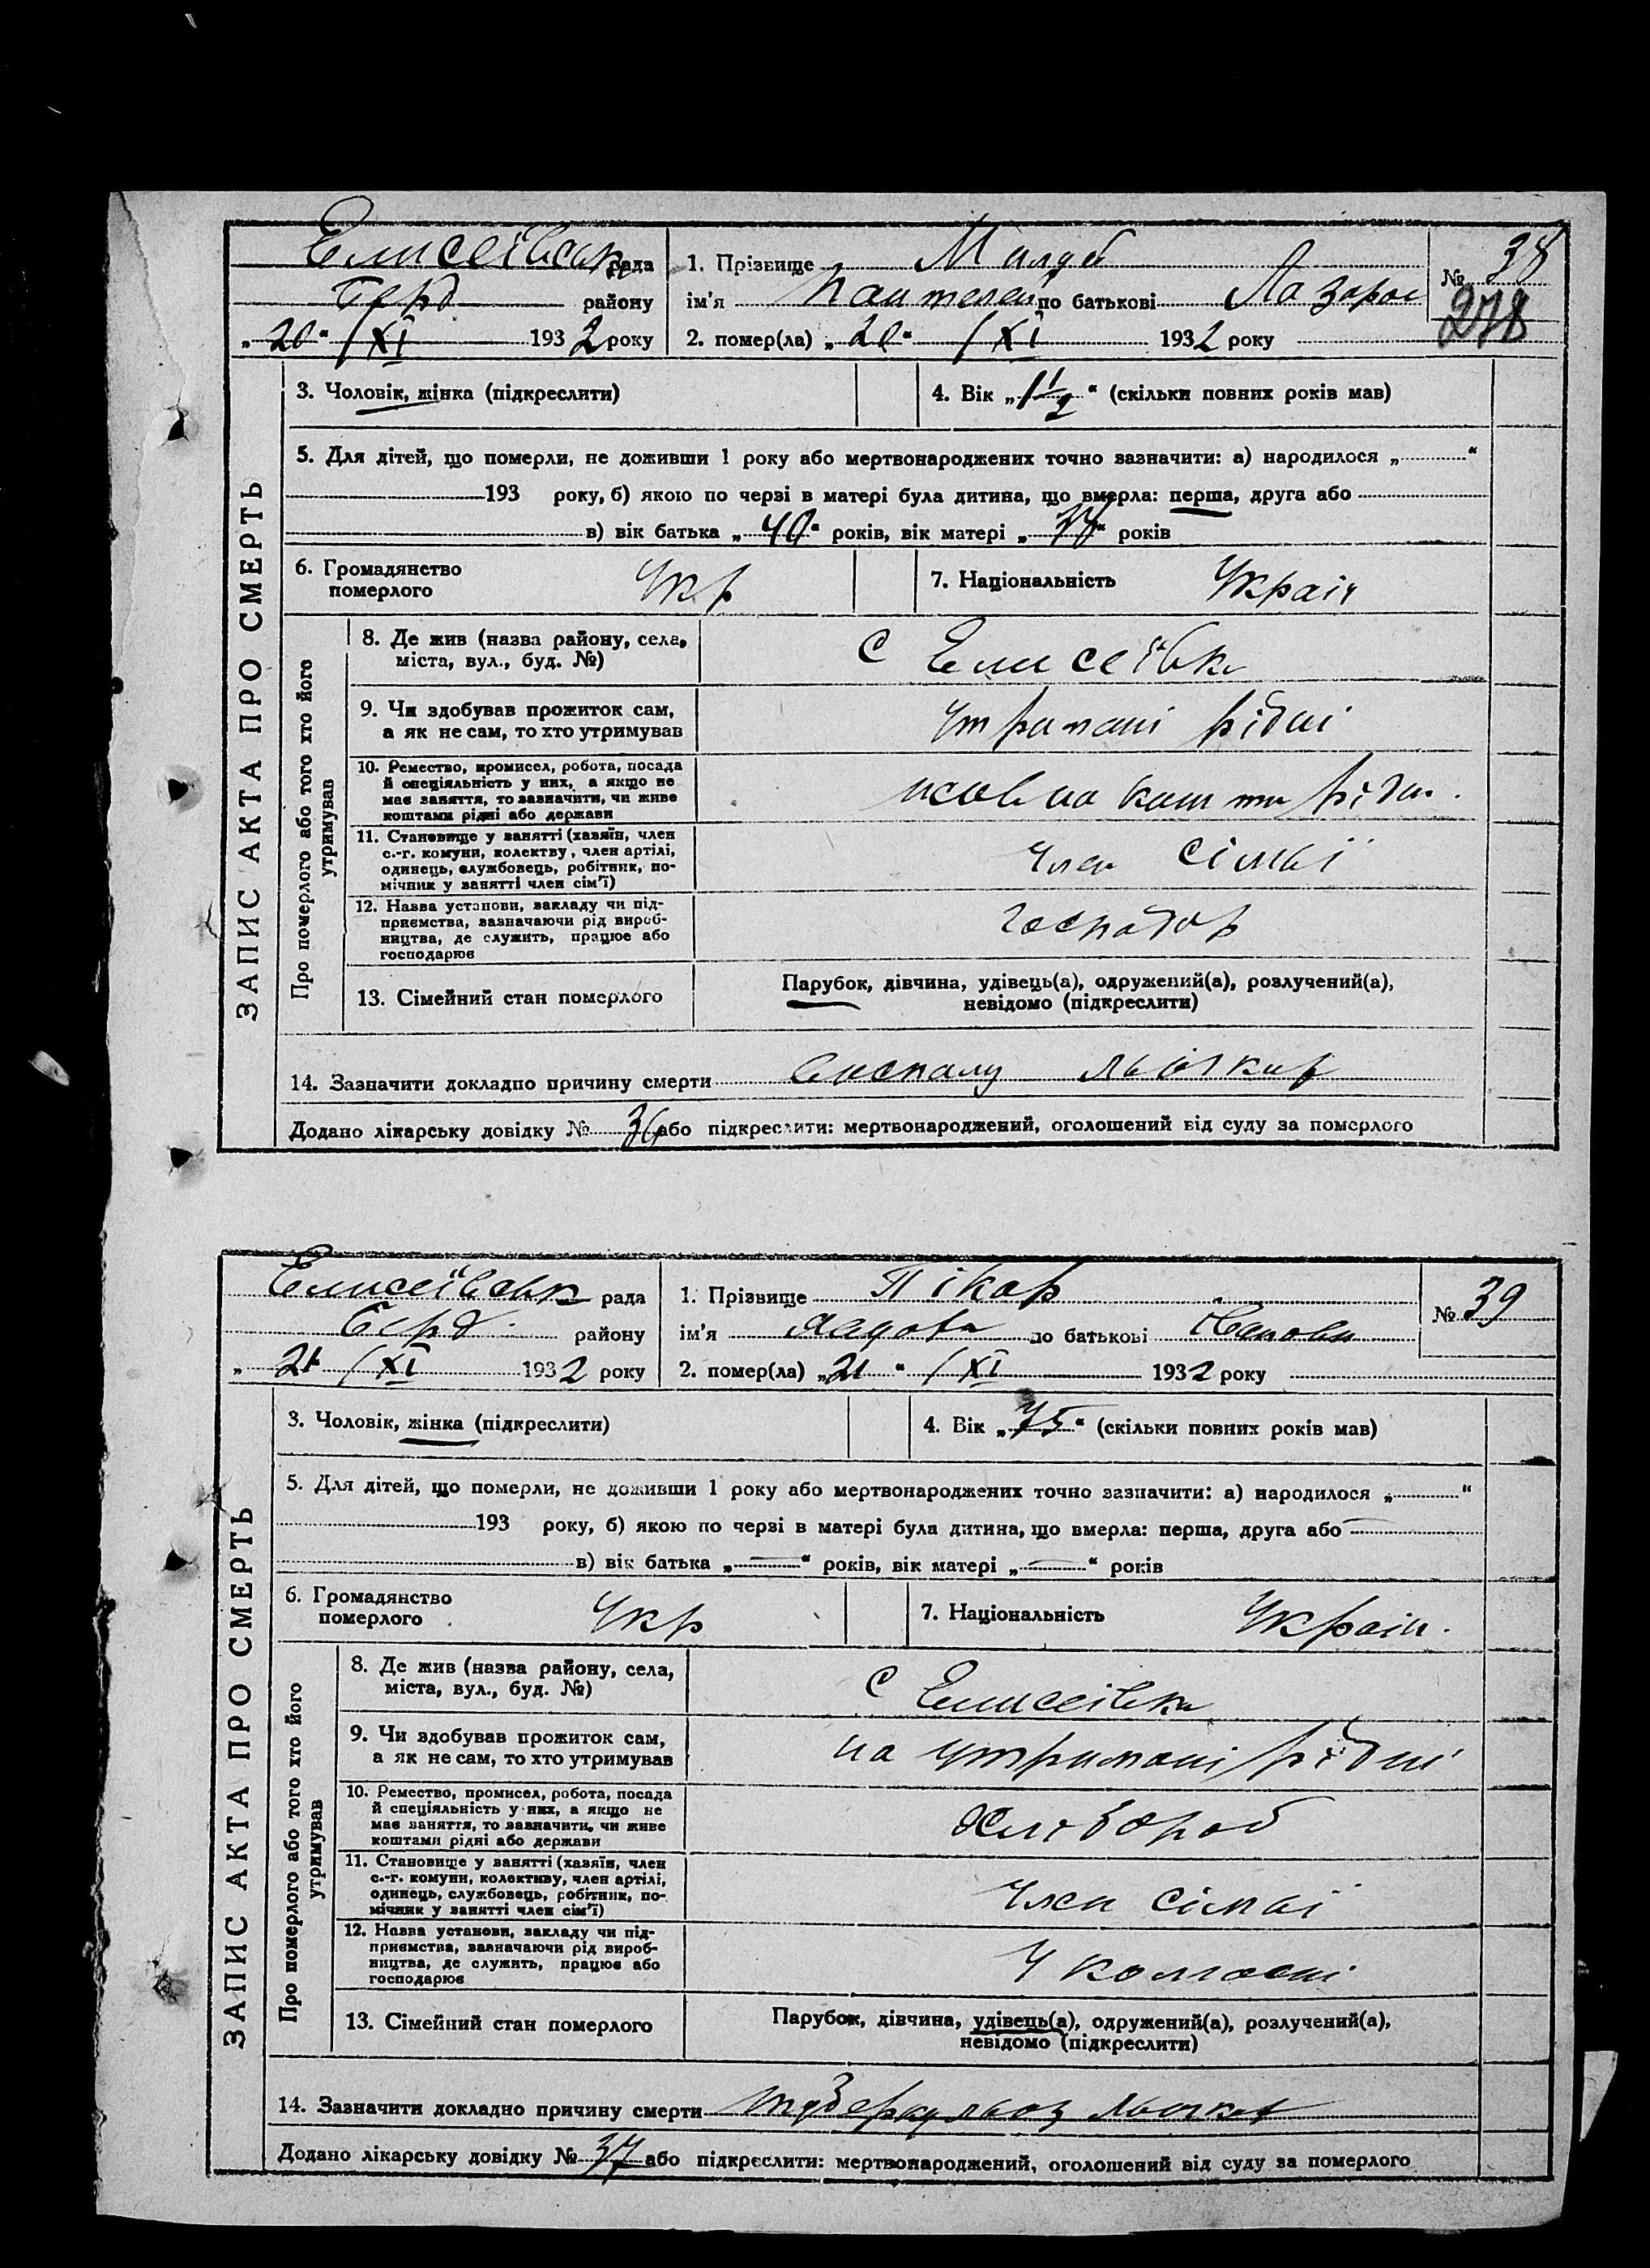 Єлисеївськ рада
Берд району
„ 20 “ / XI 1932 року
1. Прізвище
ім'я Пантелей по батькові Лазаров
2. помер(ла) „ 20 “ / XI 1932 року
№ 38
278
ЗАПИС АКТА ПРО СМЕРТЬ
3. Чоловік, жінка (підкреслити)
4. Вік „ 1 1/2 “ (скільки повних років мав)
5. Для дітей, що померли, не доживши 1 року або мертвонароджених точно зазначити: а) народилося „ “
193 року, б) якою по черзі в матері була дитина, що вмерла: перша, друга або
в) вік батька „ 40 “ років, вік матері „ “ років
6. Громадянство
померлого
Укр
7. Національність Україн
Про померлого або того хто його
утримував
8. Де жив (назва району, села,
міста, вул., буд. №)
с Елисеївка
9. Чи здобував прожиток сам,
а як не сам, то хто утримував
Утримані рідні
10. Ремество, промисел, робота, посада
й спеціяльність у них, а якщо не
має заняття, то зазначити, чи живе
коштами рідні або держави
кошти рідн.
11. Становище у занятті (хазяїн, член
с.-г. комуни, колектву, член артілі,
одинець, службовець, робітник, по-
мічник у занятті член сім'ї)
Член сімьї
12. Назва установи, закладу чи під-
приємства, зазначаючи рід вироб-
ництва, де служить, працює або
господарює
господар
13. Сімейний стан померлого
Парубок, дівчина, удівець(а), одружений(а), розлучений(а),
невідомо (підкреслити)
14. Зазначити докладно причину смерти
Додано лікарську довідку № 36 або підкреслити: мертвонароджений, оголошений від суду за померлого
Елисеївськ рада
Берд. району
„ 21 / XI 1932 року
1. Прізвище Пікар
ім'я по батькові
2. помер(ла) „ 21 “ / XI 1932 року
№ 39
ЗАПИС АКТА ПРО СМЕРТЬ
3. Чоловік, жінка (підкреслити)
4. Вік „ 75 “ (скільки повних років мав)
5. Для дітей, що померли, не доживши 1 року або мертвонароджених точно зазначити: а) народилося „ “
193 року, б) якою по черзі в матері була дитина, що вмерла: перша, друга або —
в) вік батька „ — “ років, вік матері „ — “ років
6. Громадянство
померлого
Укр
7. Національність Україн.
Про померлого або того хто його
утримував
8. Де жив (назва району, села,
міста, вул., буд. №)
с Елисеївка
9. Чи здобував прожиток сам,
а як не сам, то хто утримував
на утримані рідні
10. Ремество, промисел, робота, посада
й спеціяльність у них, а якщо не
має заняття, то зазначити, чи живе
коштами рідні або держави
Хлібороб
11. Становище у занятті (хазяїн, член
с.-г. комуни, колективу, член артілі,
одинець, службовець, робітник, по-
мічник у занятті член сім'ї)
Член сімьї
12. Назва установи, закладу чи під-
приємства, зазначаючи рід вироб-
ництва, де служить, працює або
господарює
У колгоспі
13. Сімейний стан померлого
Парубок, дівчина, удівець(а), одружений(а), розлучений(а),
невідомо (підкреслити)
14. Зазначити докладно причину смерти туберкульоз
Додано лікарську довідку № 37 або підкреслити: мертвонароджений, оголошений від суду за померлого